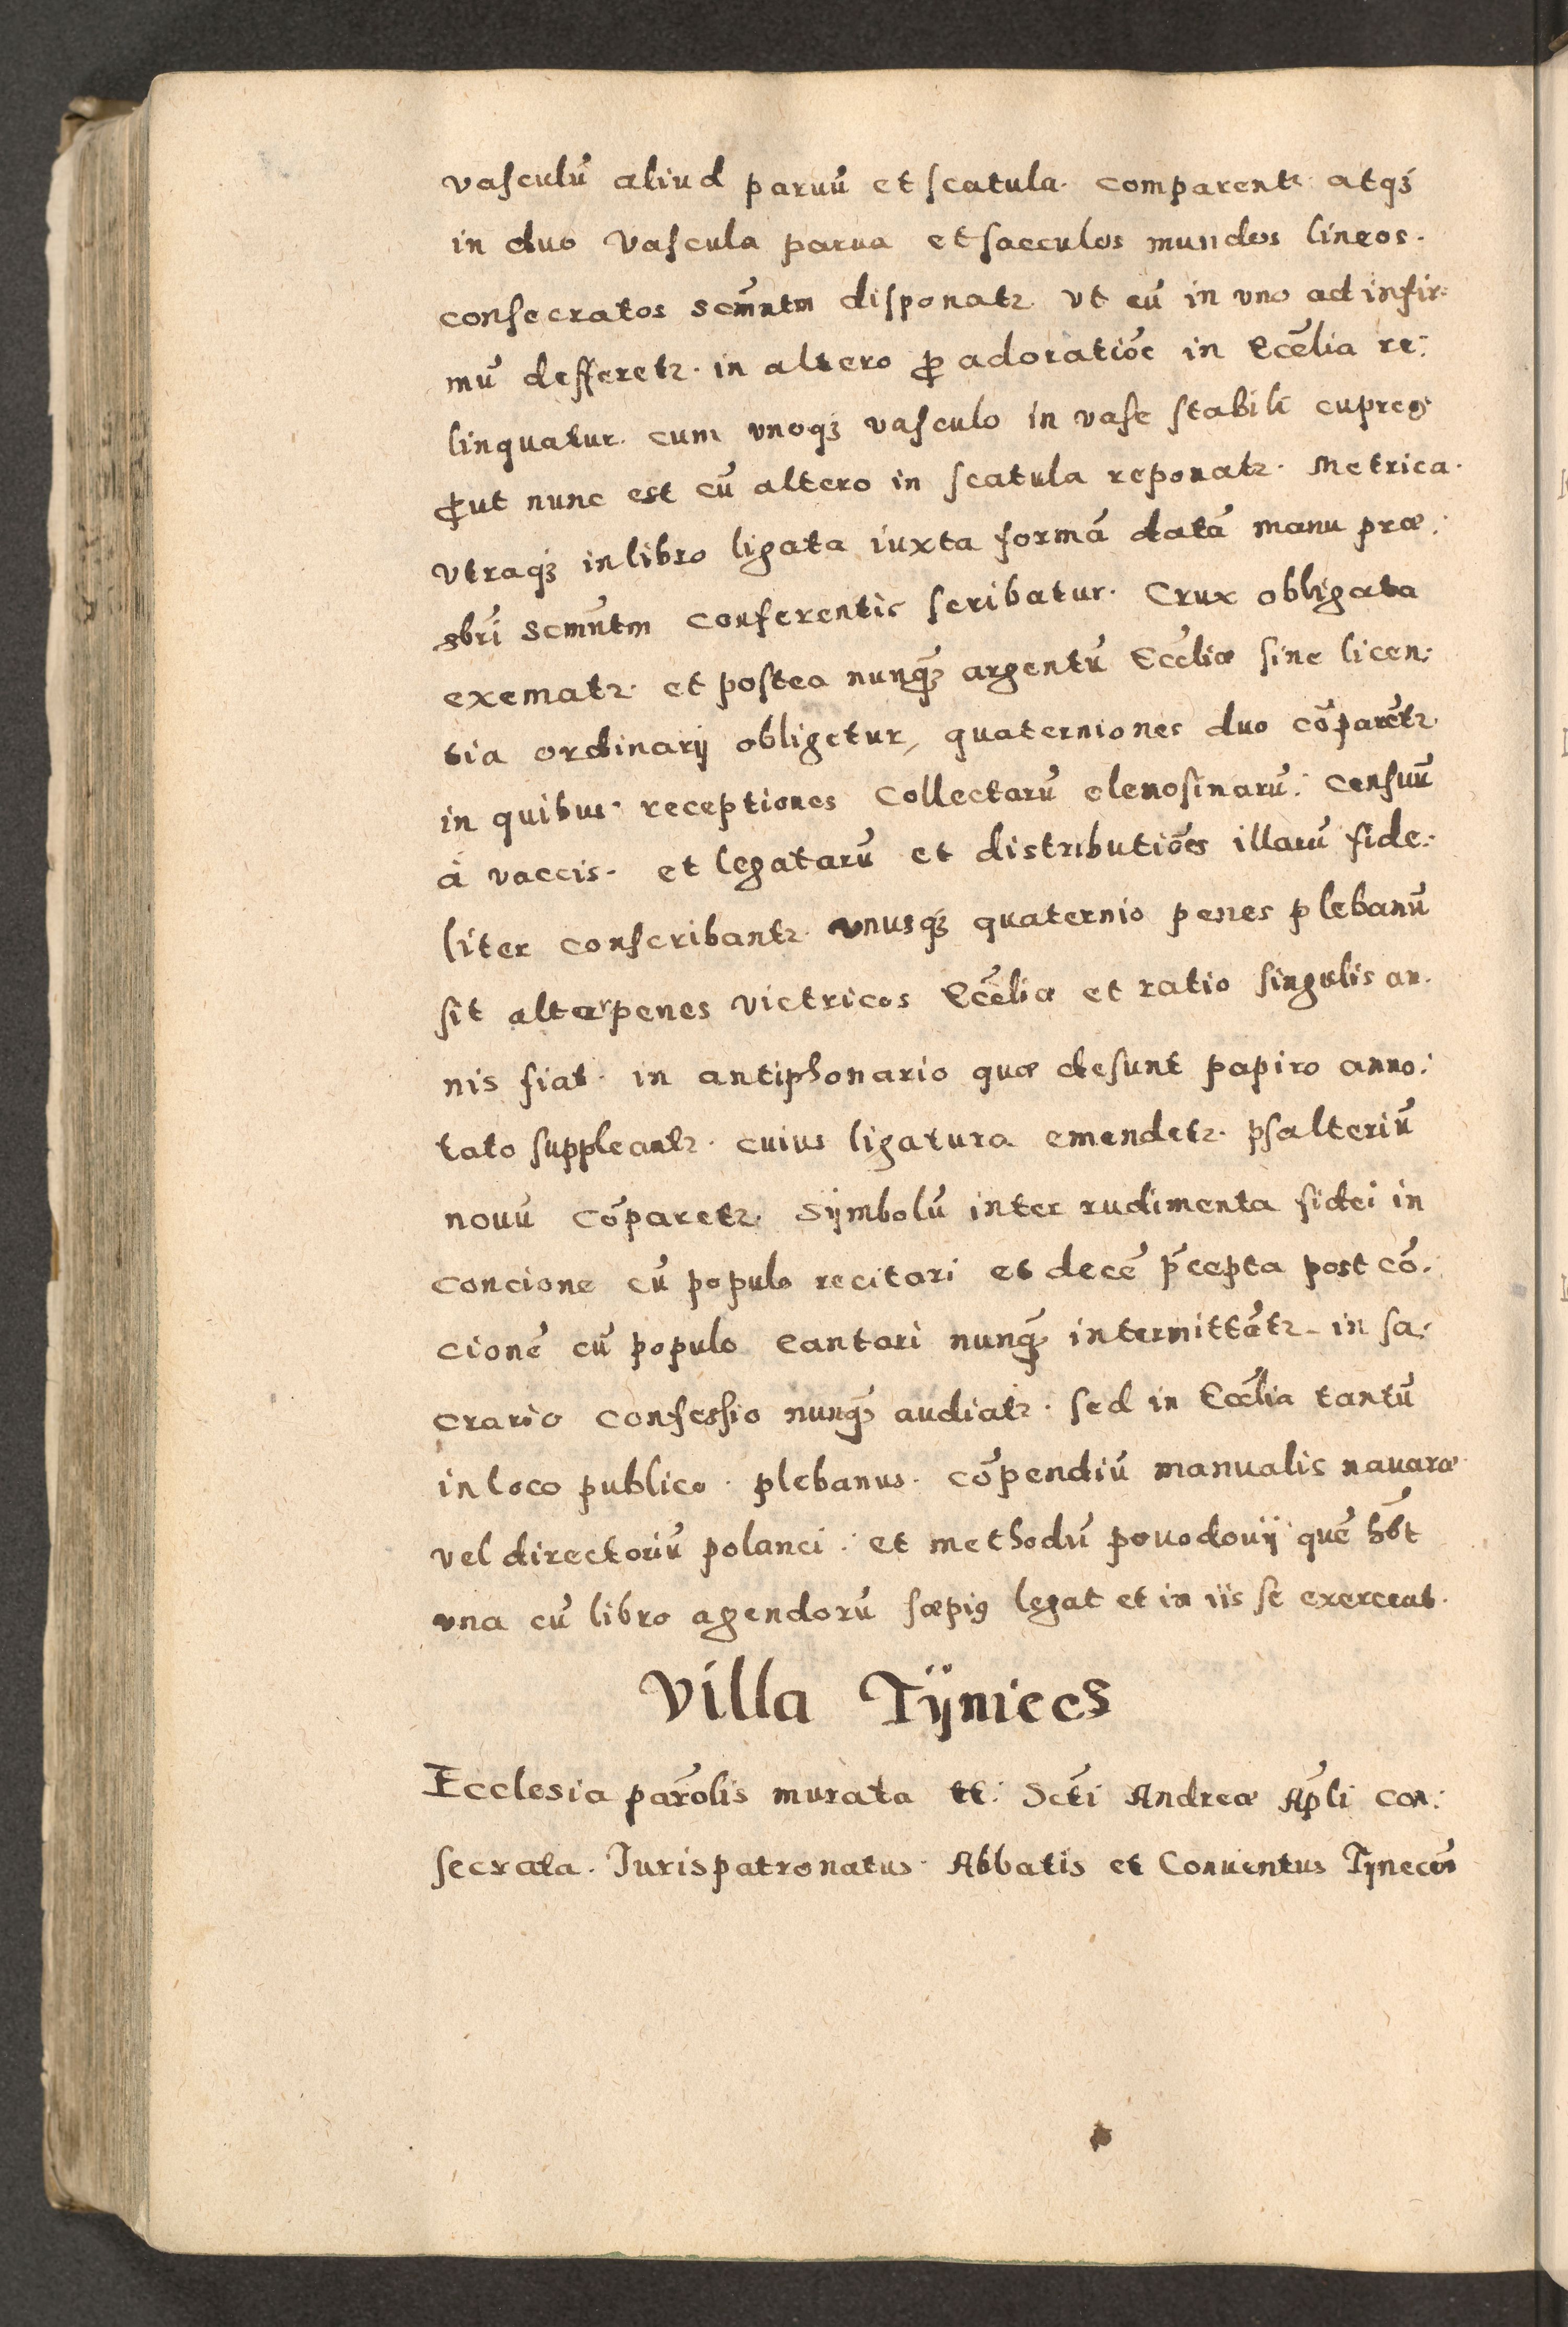 vasculū aliud paruū et scatula. comparentr. atqȝ
in duo vascula parua et sacculos mundos lineos.
consecratos scm̄ntm disponatr. vt cū in vno ad infir:
mū defferetr. in altero ꝓ adoratiōe in Eccēlia re:
linquatur. cum vnoqȝ vasculo in vase stabili cupreo
ꝓut nunc est cū altero in scatula reponatr. Metrica.
vtraqȝ in libro ligata iuxta formā datā manu præ:
sbrī scm̄ntm conferentis scribatur. Crux obligata
exematr. et postea nunqȝ argentū Eccēliæ sine licen:
tia ordinarij obligetur, quaterniones duo cōparētr.
in quibus. receptiones Collectarū elemosinarū: Censuū
á vaccis. et legatarū et distributiōes illarū fide:
liter conscribantr. vnusqȝ quaternio penes plebanū
sit alter penes victricos Eccēliæ et ratio singulis an.
nis fiat. in antiphonario quæ desunt papiro anno:
tato suppleantr. cuius ligatura emendetr. psalteriū
nouū cōparetr. Sÿmbolū inter rudimenta fidei in
concione cū populo recitari et decē p̄cepta post cō.
cionē cū populo cantari nunqȝ intermittātr. in sa:
crario confessio nunqȝ audiatr. sed in Eccēlia tantū
in loco publico. plebanus. cōpendiū manualis nauaræ
vel directoriū polanci: et methodū pouodouij quē hēt
vna cū libro agendorū sæpiꝰ legat et in iis se exerceat.
Villa Tÿniecs
Ecclesia parōlis murata tt: Sctī Andreæ Ap̄li con:
secrata. Iurispatronatus. Abbatis et Conuentus Tÿnecen̄